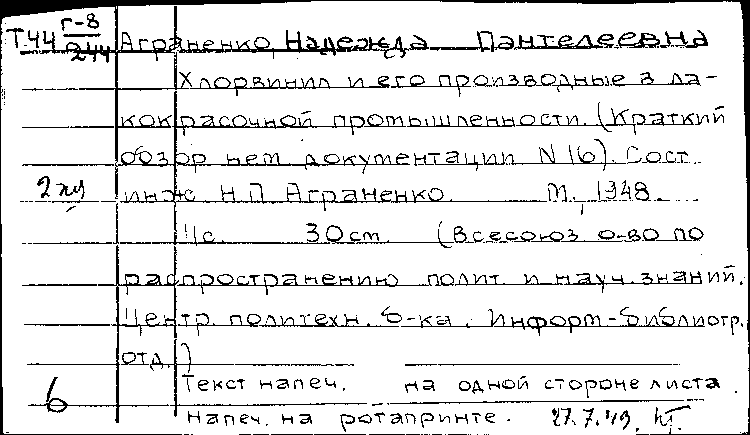 Т44 г-8
244 Аграненко, Надежда Пантелеевна
Хлорвинил и его производные в ла-
кокрасочной промышленности. (Краткий
обзор нем. документации N 16). Сост.
2 инж. Н.П. Аграненко. М., 1948.
11с. 30см. (Всесоюз. о-во по
распространению полит. и науч. знаний.
Центр. политехн. б-ка. Информ-библиотр.
отд.)
Текст напеч. на одной стороне листа.
6 Напеч. на ротапринте. 27.7.49.